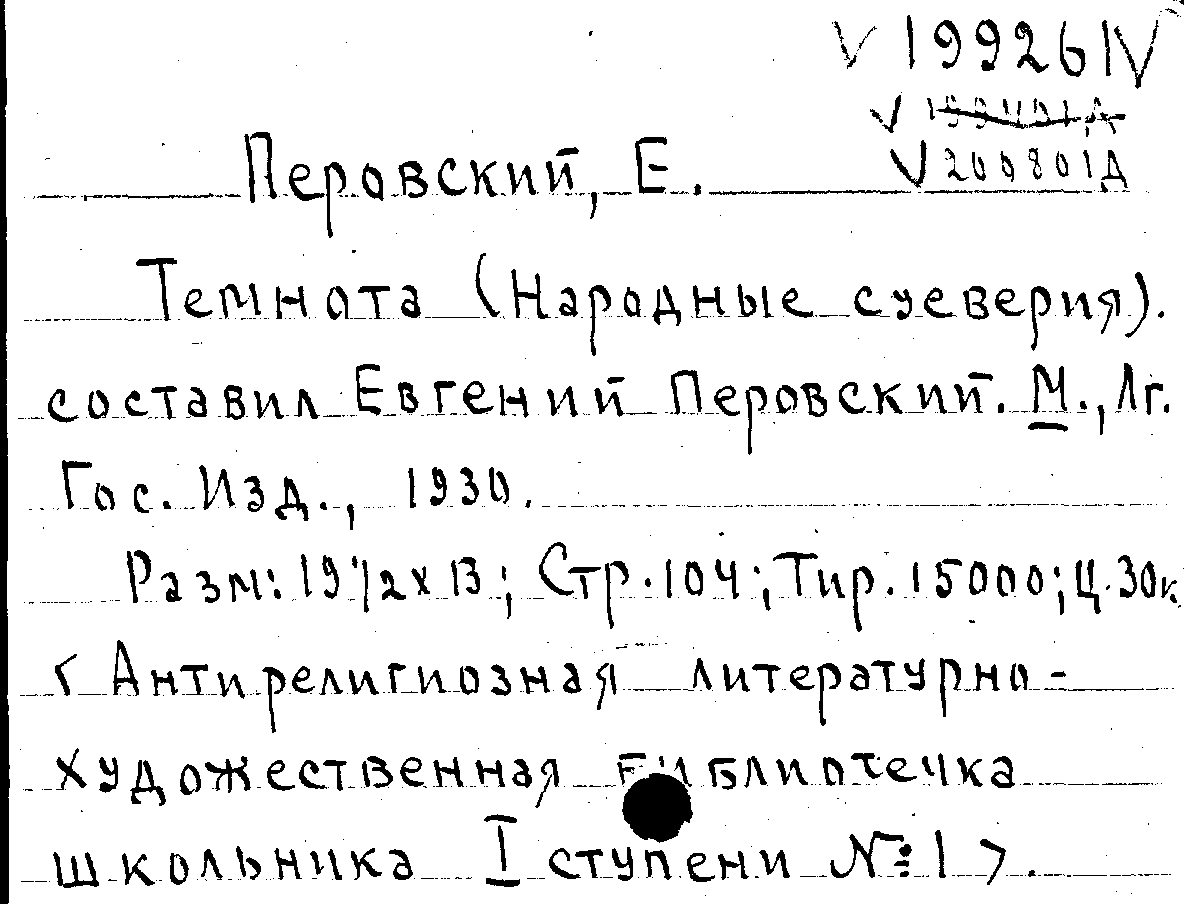 V 19926 IV
V 200801Д
Перовский, Е.
Темнота (Народные суеверия).
составил Евгений Перовский. М., Лг.
Гос. Изд., 1930.
Разм: 19 1/2 х 13; Стр. 104; Тир. 15000; Ц. 30к
< Антирелигиозная литературно-
художественная библиотечка
школьника I ступени №1 >.